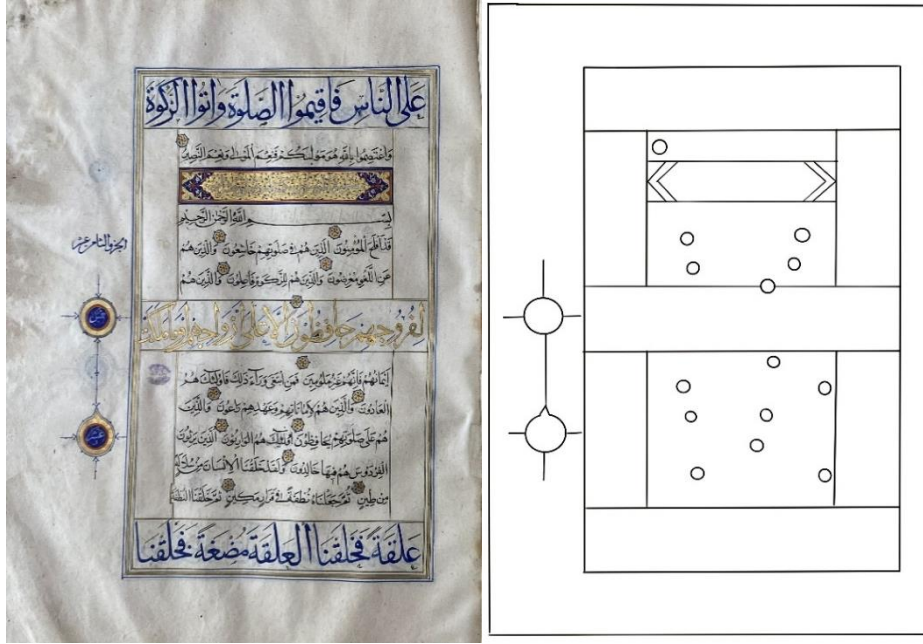 على الناس فاقيموا الصلوة واتوا الزكوة
واعتصموا بالله هو موليكم فنعم المولى ونعم النصير
بسم الله الرحمن الرحيم
قد افلح المؤمنون الذين هم في صلوتهم خاشعون والذين هم
عن اللغو معرضون والذين هم للزكوة فاعلون والذين هم
الجزو الثامن عشر
لفروجهم حافظون الا على ازواجهم او ما ملكت
خمس
ايمانهم فانهم غير ملومين فمن ابتغى وراء ذلك فاولئك هم
العادون والذين هم لاماناتهم وعهدهم راعون والذين
هم على صلوتهم يحافظون اولئك هم الوارثون الذين يرثون
عشر
الفردوس هم فيها خالدون ولقد خلقنا الانسان من سلالة
من طين ثم جعلناه نطفة في قرار مكين ثم خلقنا النطفة
علقة فخلقنا العلقة مضغة فخلقنا